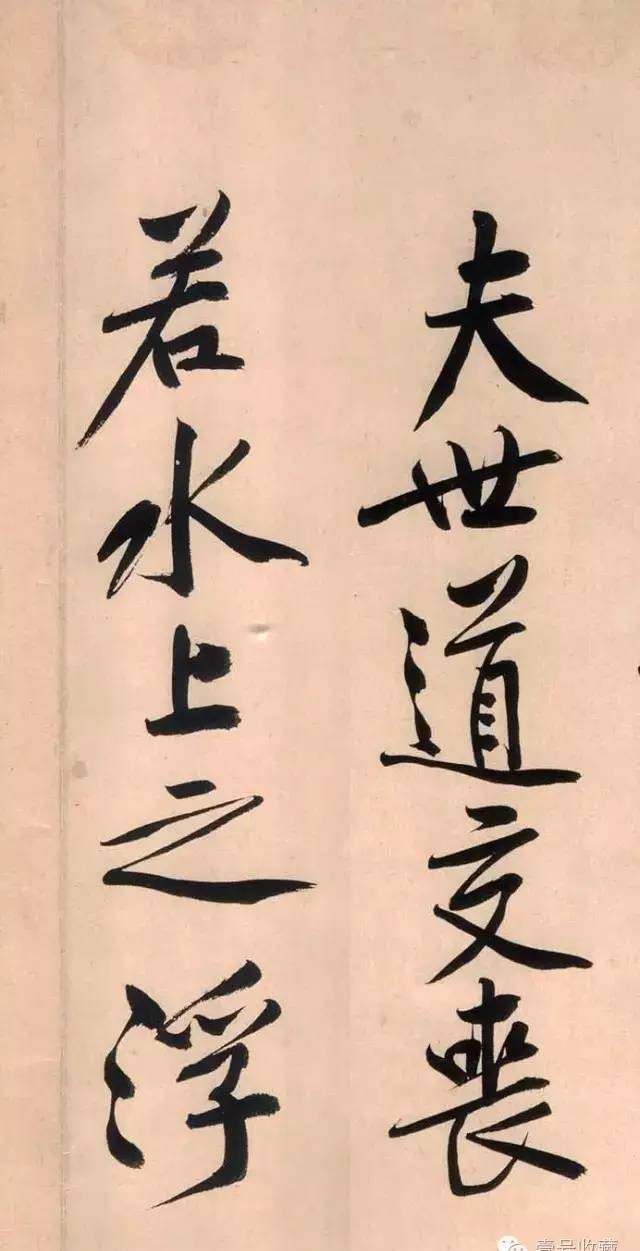 夫世道交喪
若水上之浮
壹号收藏